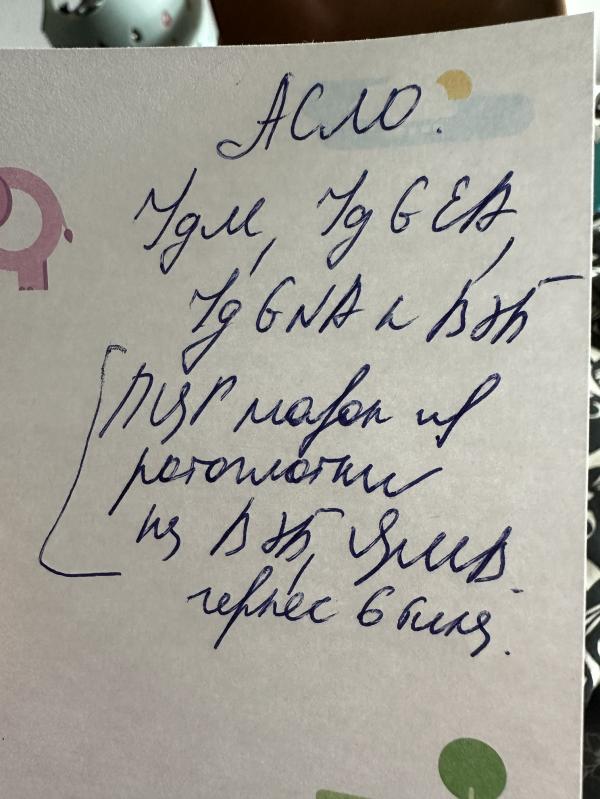 АСЛО.
YgM, Yg G EA,
Yg G NA к ВЭБ
ПЦР мазок из
ротоглотки
на ВЭБ, ЦМВ.
герпес 6 типа.